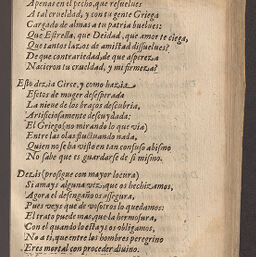 Apenas en el pecho, que resuelues
A tal crueldad, y con tu gente Griega
Cargado de almas a tu patria buelues:
Que Estrella, que Deidad, que amor te ciega,
Que tantos lazos de amistad dissuelues?
De que contrariedad, de que aspereza
Nacieron tu crueldad, y mi firmeza?
Esto dezia Circe, y como hazia
Efetos de muger desesperada
La nieue de los braços descubria,
Artificiosamente descuydada:
El Griego (no mirando lo que via)
Entre las olas fluctuando nada,
Quien no se ha visto en tan confuso abismo
No sabe que es guardarse de si mismo.
Dezis (prosigue con mayor locura)
Si amays alguna vez, que os hechizamos,
Agora el desengaño os assegura,
Pues veys que de vosotros lo quedamos:
El trato puede mas, que la hermosura,
Con el quando los tays os obligamos,
No a ti, que entre los hombres peregrino
Eres mortal con proceder diuino.